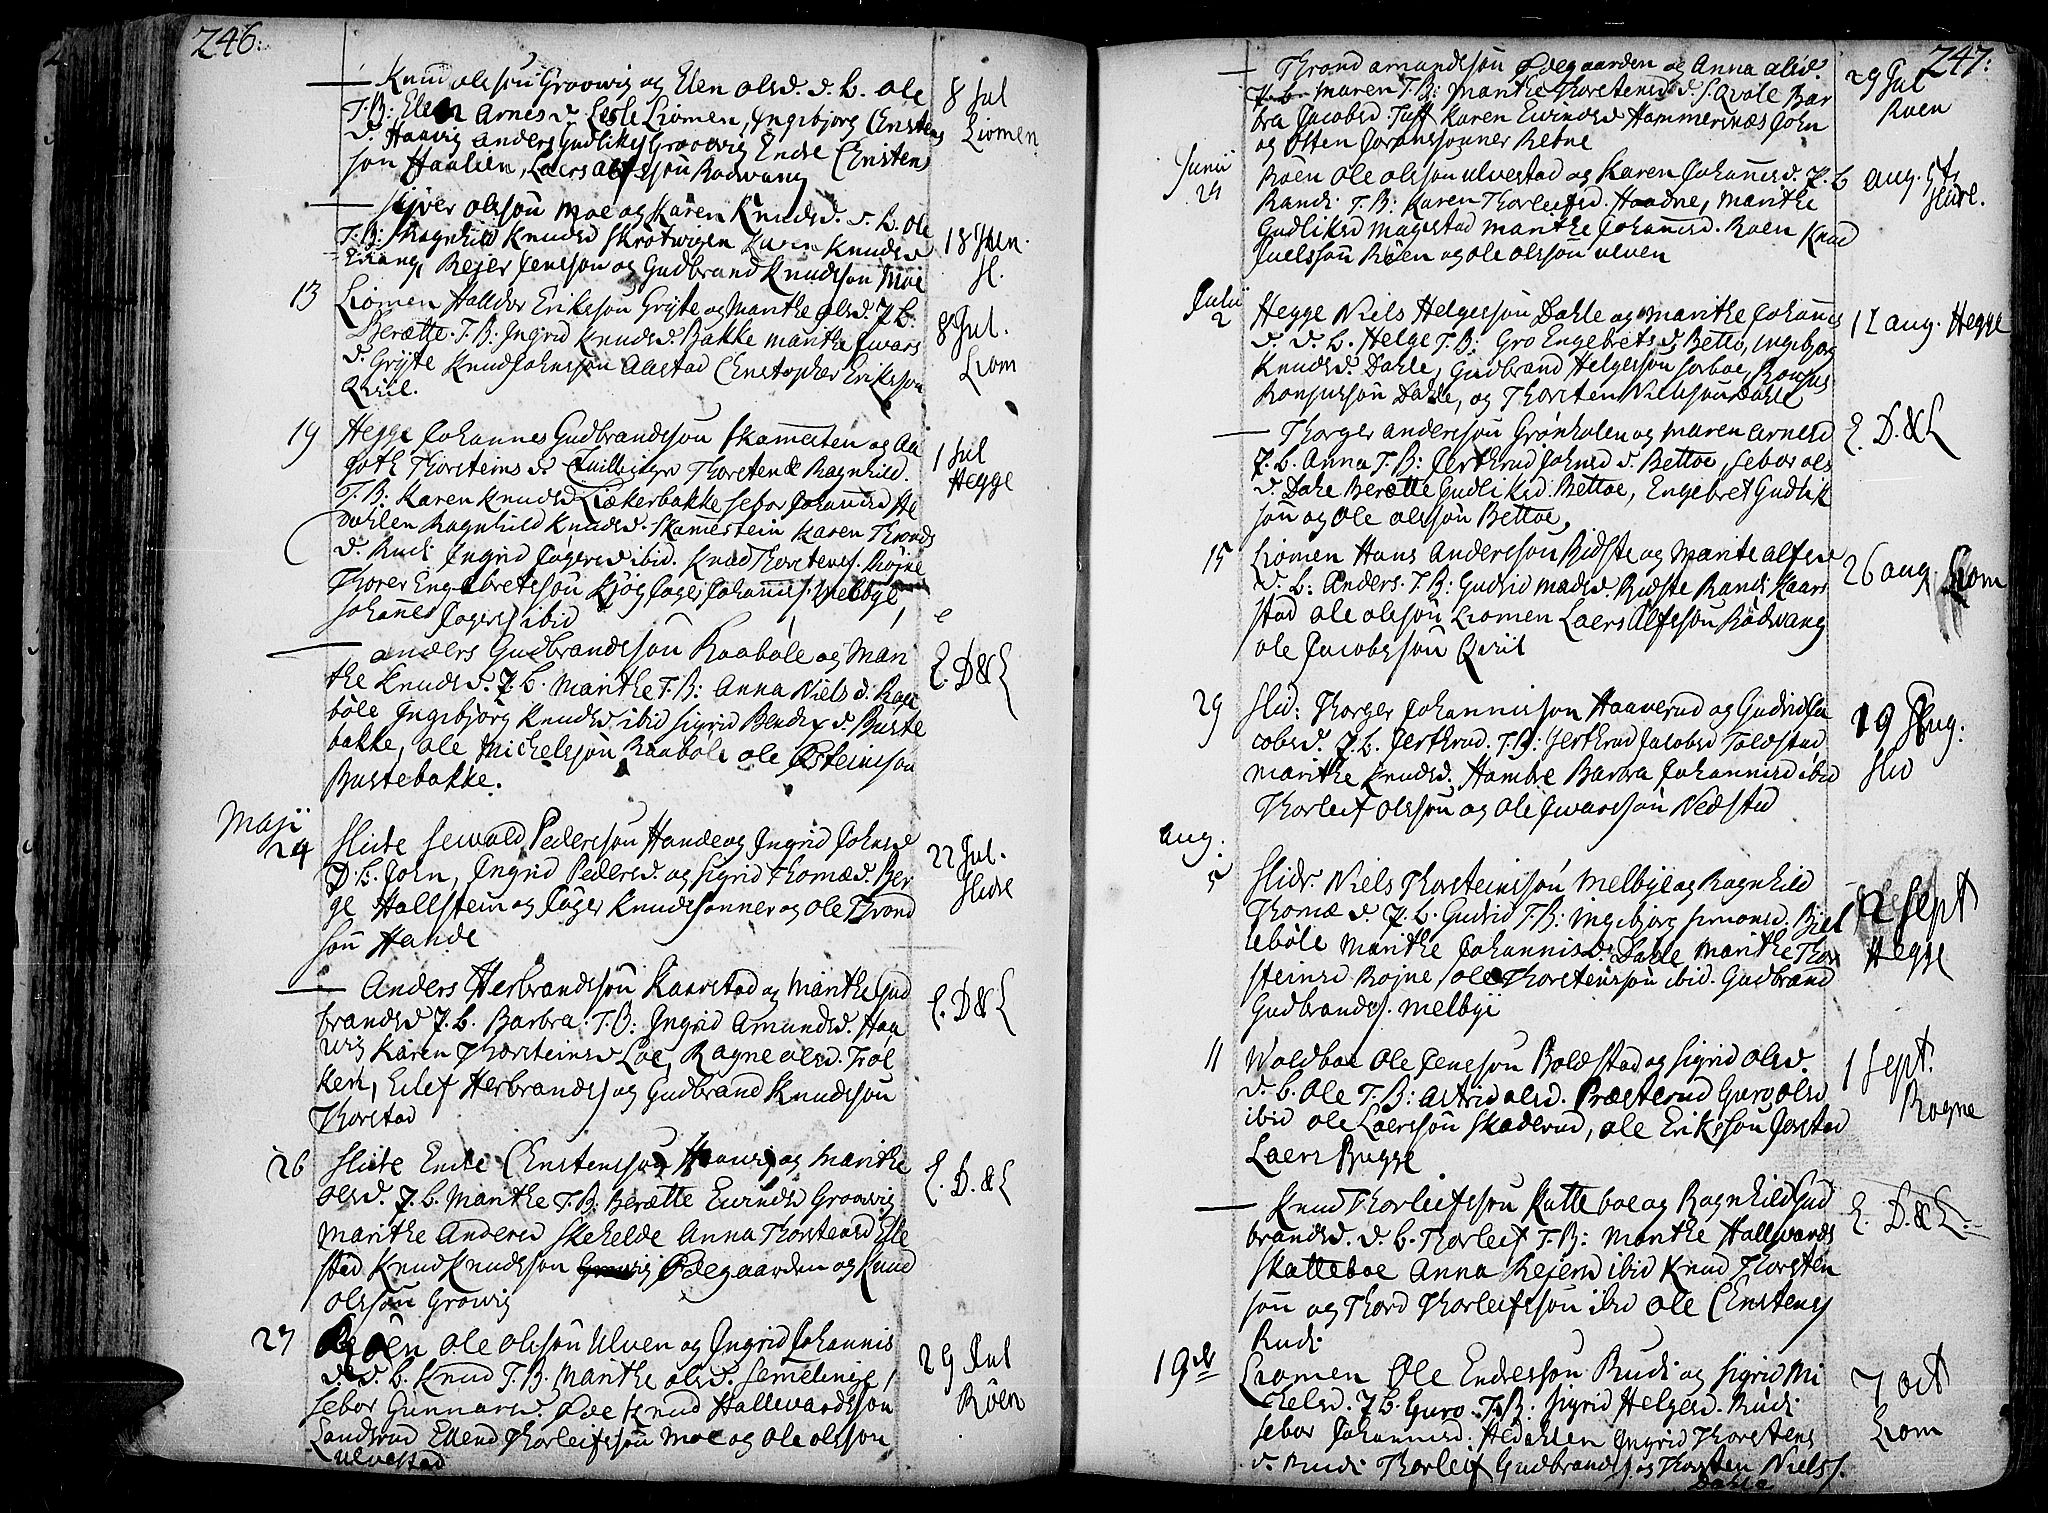 246:
— Knud olssøn Groowig og Elen olsd. d. b. ole
T. B: Elen Arnesd Lisle Liomen, Ingebjorg Enstens
d. Haavig anders Gudliks Groowig Endre Enstens
søn Haalien, Laers alfssøn Rodwang
8 Jul
Liomen
— Siver olssøn Moe og Karen Knudsd. d. b. ole
T. B: Ragnhild Knudsd Skrotwigen Karen Knudsd
Erang, Rejer Jenssøn og Gudbrand Knudssøn Moe
18 Jun.
Sl.
13 Liomen Halldor Erikssøn Grijte og Marithe olsd. J. b.
Berætte. T. B: Ingrid Knudsd. Bakke Marithe Iwars
d. Grijte Knud Johnssøn Alstad Christopher Erikssøn
Qviil.
8 Jul.
Liom
19 Hegge Johannes Gudbrandssøn Skamesten og Aa
goth Thorsteins d Tvillinger Thorsten & Ragnhild.
T. B: Karen Knudsd Kiækerbakke Sebor Johannisd He
dahlen Ragnhild Knudsd. Skamestein Karen Thronds
d. Rudi Ingrid Jøgersd ibid. Knud Thorstens. Røjne
Thorer Engebretssøn Kjøg Jøger Johannis. Melbye
Johannes Jøgers ibid
1 Jul
Hegge
— anders Gudbrandssøn Raabøle og Mari
the Knudsd. J. b. Marithe T. B: Anna Nielsd. Raa
bøle Ingebjorg Knudsd ibid Sigrid Bendixd. Buste
bakke, ole Michelssøn Raabøle ole Østeinssøn
Bustebakke.
E. D & L
Maji
24 Slidre Sewald Pederssøn Hande og Ingrid Johnsd
D. b. John, Ingrid Pedersd. og Sigrid Thomæd. Ber
ge Hallstein og Jøger Knudssønner og Ole Thrond
søn Hande
22 Jul.
Slidre
— Anders Herbrandssøn Kaarstad og Marithe Gud
brandsd J. b. Barbra. T. B: Ingrid Amundsd. Haa
vig Karen Thorsteinsd Loe, Ragne olsd. Trøl
ken, Eilef Herbrands og Gudbrand Knudssøn
Thorstad
E. D & L
26 Slidre Endre Enstenssøn Haavig og Marithe
olsd. J. b. Marithe T. B: Berætte Evindsd Groowig
Marithe Andersd Skehelde Anna Thorstensd Elle
stad Knud Knudssøn Groowig Ødegaarden og Knud
olssøn Growig
E. D. & L
27 Røen ole olssøn Ulven og Ingrid Johannis
d. d. b. Knud T. B. Marithe olsd. Semelinge,
Sebor Gunnarsd. Øde Knud Hallevardssøn
Landsrud Ellend Thorleifssøn Moe og Ole olssøn
Ulvestad
29 Jul
Røen
247:
— Thrond amundssøn Ødegaarden og Anna olsd.
J. b. Maren T. B: Marithe Thorstensd. S. Qvale Bar
bra Jacobsd. Tuff Karen Eivindsd Hammersnæs John
og Østen Joranssønner Retne
29 Jul
Roen
Junii
24 Røen Ole olssøn Ulvestad og Karen Johannisd. J. b
Randi T. B: Karen Thorleifsd. Haadne, Marithe
Gudliksd Magestad Marithe Johannisd. Roen Knud
Juelssøn Røen og ole olssøn ulven
aug. 5t
Slidr.
Julii
2 Hegge Niels Helgessøn Dahle og Marithe Johannis
d. d. b. Helge T. B: Gro Engebretsd. Bettø, Ingebjorg
Knudsd. Dahle, Gudbrand Helgessøn Sorboe, Ronjus
Ronjussøn Dahle, og Thorsten Nielssøn Dahle
12 aug. Hegge
— Thorger anderssøn Grønholen og Maren arnesd
J. b. Anna T. B: Jerthrud Johnsd. Bettoe, Sebor ols
d. Dahle Berætte Gudliksd. Bettoe, Engebret Gudlik
søn og Ole olssøn Bettoe,
E. D. & L
15 Liomen Hans Anderssøn Ridste og Marite alfsd
d. b. Anders. T. B: Gudrid Madsd. Ridste Randi Kaars
stad ole olssøn Liomen Laers Alfssøn Rødwang
ole Jacobssøn Qviil
26 aug. Liom
29 Slid: Thorger Johannissøn Haaverud og Gudrid Ja
cobsd. J. b. Jerthrud. T. B: Jerthrud Jacobsd Toldstad
Marithe Knudsd. Hambre Barbra Johannisd ibid
Thorleif olssøn og ole Iwarssøn Nedstad
19 Aug:
Slid
aug.
5 Slidr. Niels Thorsteinssøn Melbye og Ragnhild
Thomæ d. J. b. Gudrid T. B: Ingebjorg Simonsd. Biel
lebøle Marithe Johannisd. Dahle Marithe Thor
steinsd Rojne ole Thorstenssøn ibid. Gudbrand
Gudbrands. Melbye
2 Sept
Hegge
11 Woldboe Ole Jenssøn Boldstad og Sigrid olsd.
d. b. Ole T. B: Astrid olsd. Præsterud Guro olsd
ibid ole Laerssøn Skaderud, ole Erikssøn Jorstad
Laers Bugge
1 Sept.
Rogne
— Knud Thorleifssøn Katteboe og Ragnhild Gud
brandsd. d. b. Thorleif T. B: Marithe Hallwards
Skatteboe Anna Rejersd ibid Knud Thorsten
søn og Thord Thorleifssøn ibid Ole Enstens
Rudi
E. D. & L.
19de Liomen Ole Enderssøn Rudi og Sigrid Mi
chelsd. J. b. Guro. T. B: Sigrid Helgesd. Rudi
Sebor Johannisd. Hedahlen Ingrid Thorstens
d. Rudi Thorleif Gudbrands og Thorsten Niels s.
Dahle
7 oct
Liom